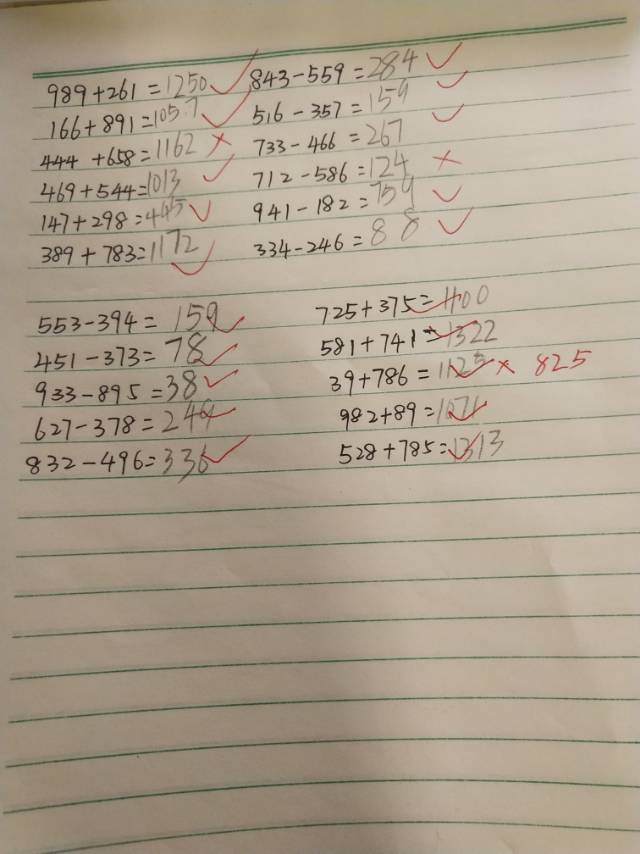 989+261=1250 843-559=284
166+891=1057 516-357=159
444+658=1162 733-466=267
469+544=1013 712-586=124
147+298=445 941-182=759
389+783=1172 334-246=88
553-394=159 725+375=1100
451-373=78 581+741=1322
933-895=38 39+786=1125 × 825
627-378=249 982+89=1071
832-496=336 528+785=1313